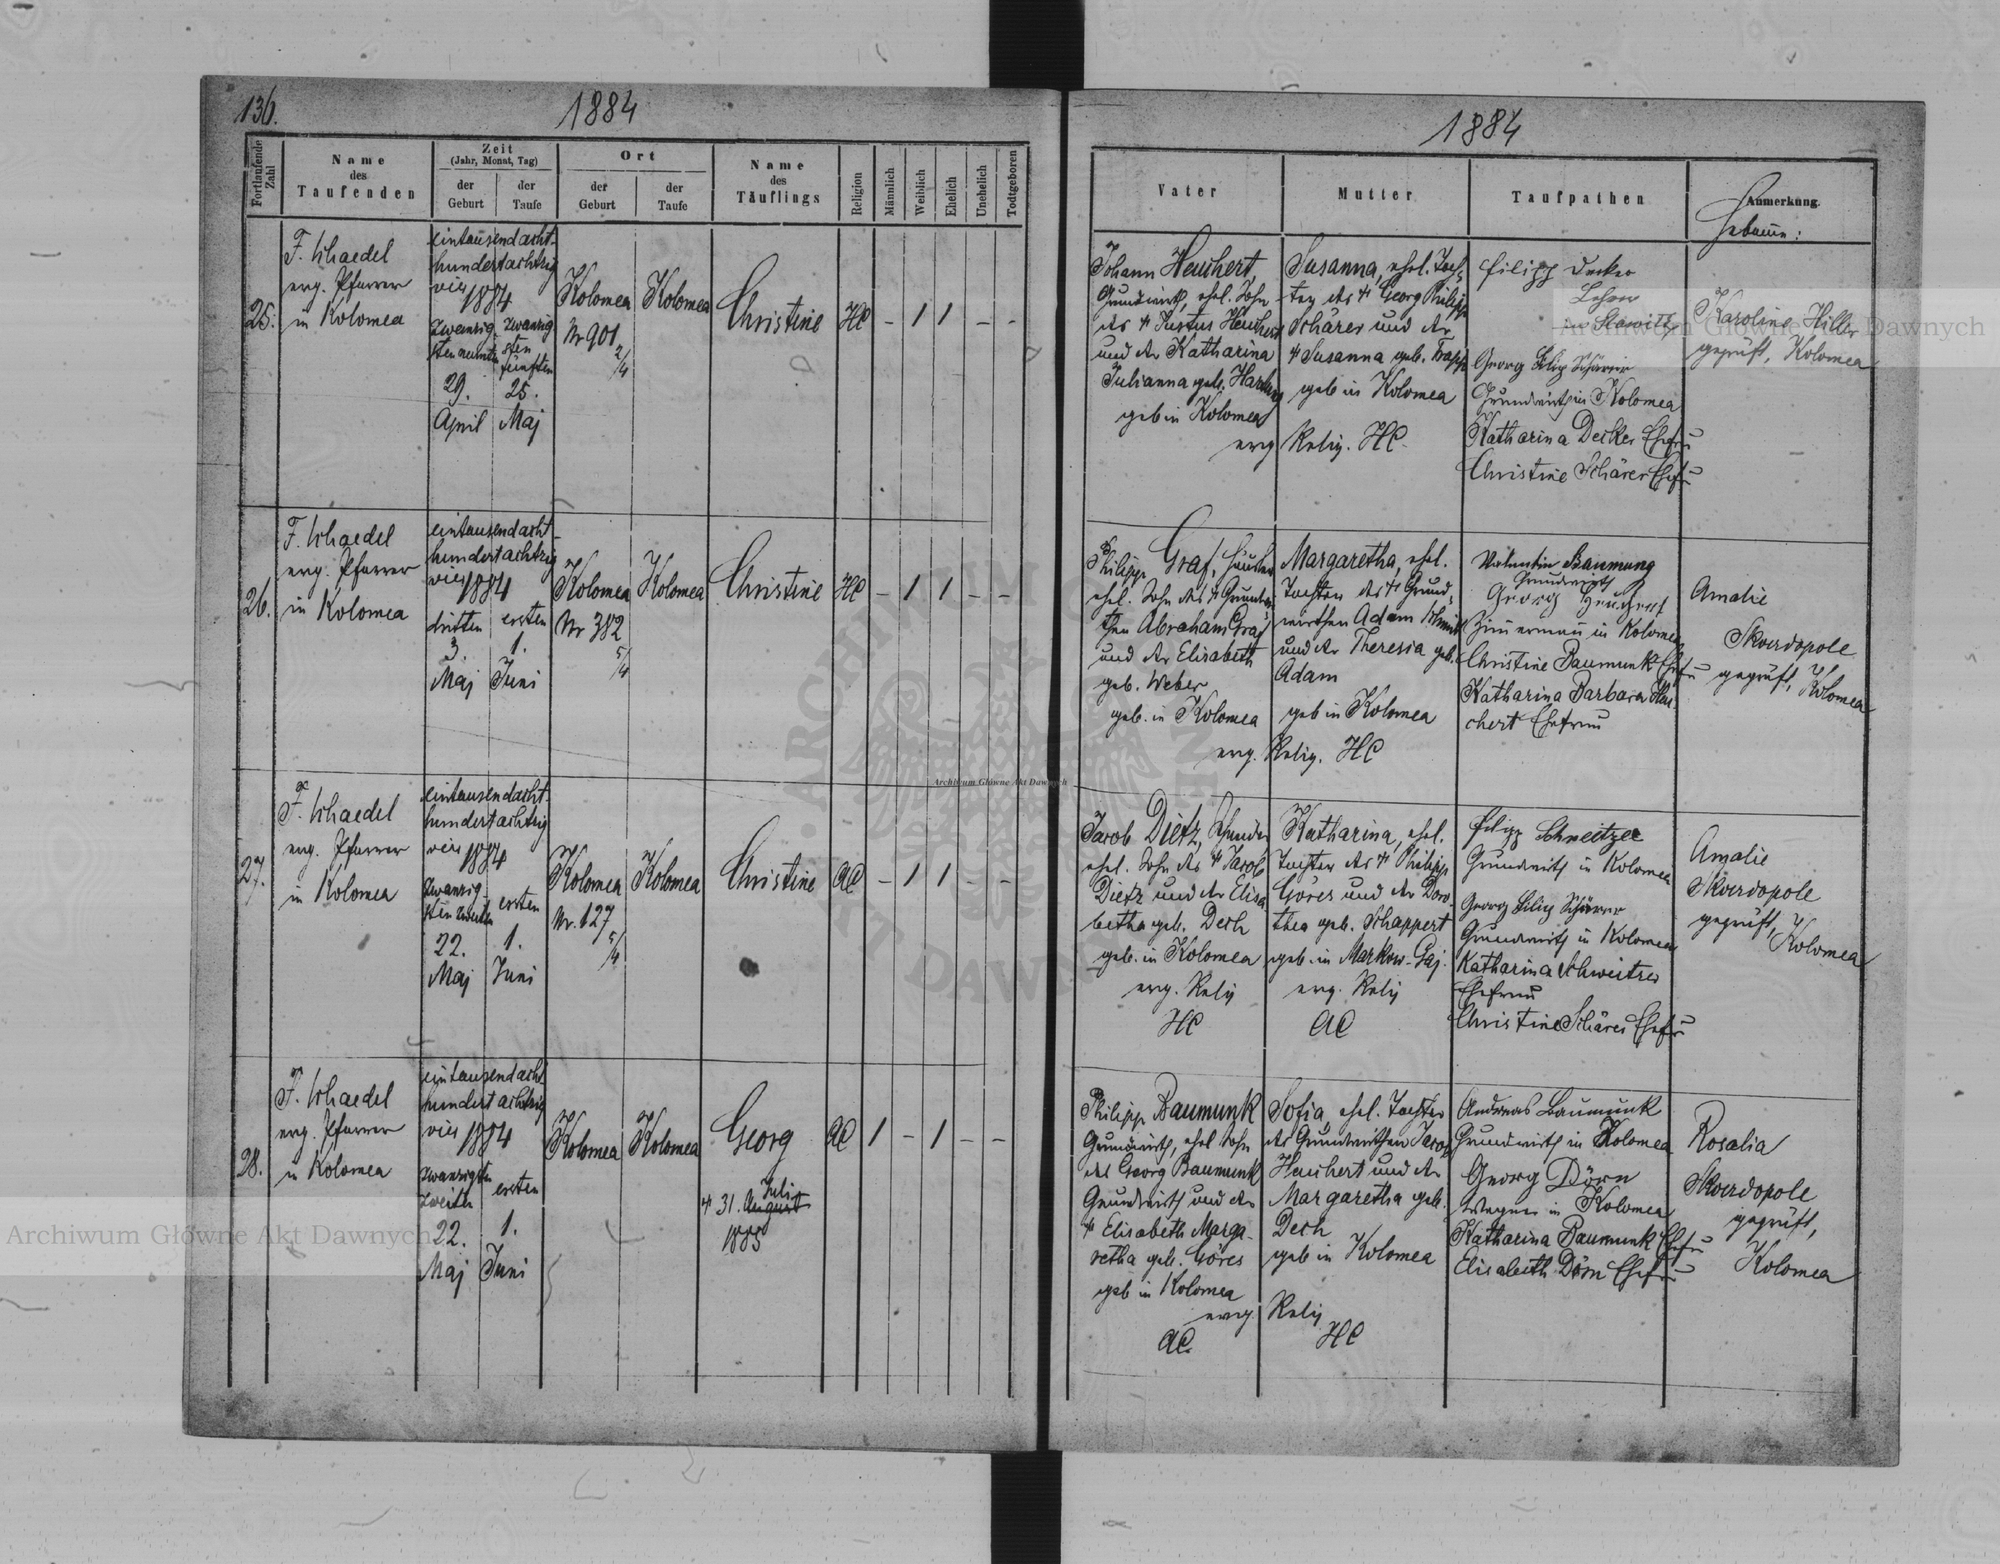 136.
1884
Fortlaufende Zahl
Name des Taufenden
Zeit
(Jahr, Monat, Tag)
der Geburt
der Taufe
Ort
der Geburt
der Taufe
Name des Täuflings
Religion
Männlich
Weiblich
Ehelich
Unehelich
Todtgeboren
25.
F. Schaedel
evg. Pfarrer
in Kolomea
eintausendacht-
hundertachtzig
vier 1884
zwanzig
sten neunten
29.
April
zwanzig
sten
fünften
25.
Maj
Kolomea
Nr 901
2/4
Kolomea
Christine
HC
- 1 1 - -
26.
F. Schaedel
evg. Pfarrer
in Kolomea
eintausendacht-
hundertachtzig
vier 1884
dritten
3.
Maj
ersten
1.
Juni
Kolomea
Nr 382
5/4
Kolomea
Christine
HC
- 1 1 - -
27.
F. Schaedel
evg. Pfarrer
in Kolomea
eintausendacht-
hundertachtzig
vier 1884
zwanzig
sten zweiten
22.
Maj
ersten
1.
Juni
Kolomea
Nr. 127
5/4
Kolomea
Christine
AC
- 1 1 - -
28.
F. Schaedel
evg. Pfarrer
in Kolomea
eintausendacht
hundertachtzig
vier 1884
zwanzigsten
zweiten
22.
Maj
ersten
1.
Juni
Kolomea
Kolomea
Georg
Juli
31. August
1885
AC
1 - 1 - -
1884
Vater
Mutter
Taufpathen
Anmerkung
Hebamme:
Johann Heuchert,
Grundwirth, ehel. Sohn
des † Justus Heuchert
und der Katharina
Julianna geb.
geb in Kolomea
evg
Susanna, ehel. Toch-
ter des † Georg Philipp
Schärer und der
† Susanna geb. Trapp
geb in Kolomea
Relig. HC.
Filipp Decker
Georg Filip Schärer
Grundwirth in Kolomea
Katharina Decker Ehefr
Christine Schärer Ehefr
Karoline Hiller
geprüft, Kolomea
Philipp Graf,
ehel. Sohn des † Grundwir-
then Abraham Graf
und der Elisabeth
geb. Weber
geb. in Kolomea
evg.
Margaretha, ehel.
Tochter des † Grund-
wirthen Adam Schmidt
und der Theresia geb.
Adam
geb in Kolomea
Relig. HC
Valentin Baumung
Grundwirth
Georg Heuchert
Zimmerman in Kolomea
Christine Baumunk Ehefr
Katharina Barbara Heu-
chert Ehefrau
Amalie
Skwrdopole
geprüft, Kolomea
Jacob Dietz,
ehel. Sohn des † Jacob
Dietz und der Elisa
betha geb. Desh
geb. in Kolomea
evg. Relig
HC
Katharina, ehel.
Tochter des † Philipp
Göres und der Doro-
thea geb. Schappert
geb. in Markow-Gaj.
evg. Relig
AC
Filipp Schneitzer
Grundwirth in Kolomea
Georg Filip Schärer
Grundwirth in Kolomea
Katharina Schweitzer
Ehefrau
Christine Schärer Ehefr
Amalie
Skwrdopole
geprüft,
Kolomea
Philipp Baumunk
Grundwirth, ehel Sohn
des Georg Baumunk
Grundwirth und der
† Elisabeth Marga-
retha geb. Göres
geb in Kolomea
evg.
AC.
Sofia, ehel. Tochter
des Grundwirthen Jacob
Heuchert und der
Margaretha geb.
Desh
geb in Kolomea
Relig
HC
Andreas Baumunk
Grundwirth in Kolomea
Georg Dörn
Wagner in Kolomea
Katharina Baumunk Ehefr
Elisabeth Dörn Ehefr
Rosalia
Skwrdopole
geprüft,
Kolomea
Archiwum Główne Akt Dawnych
Archiwum Główne Akt Dawnych
Archiwum Główne Akt Dawnych